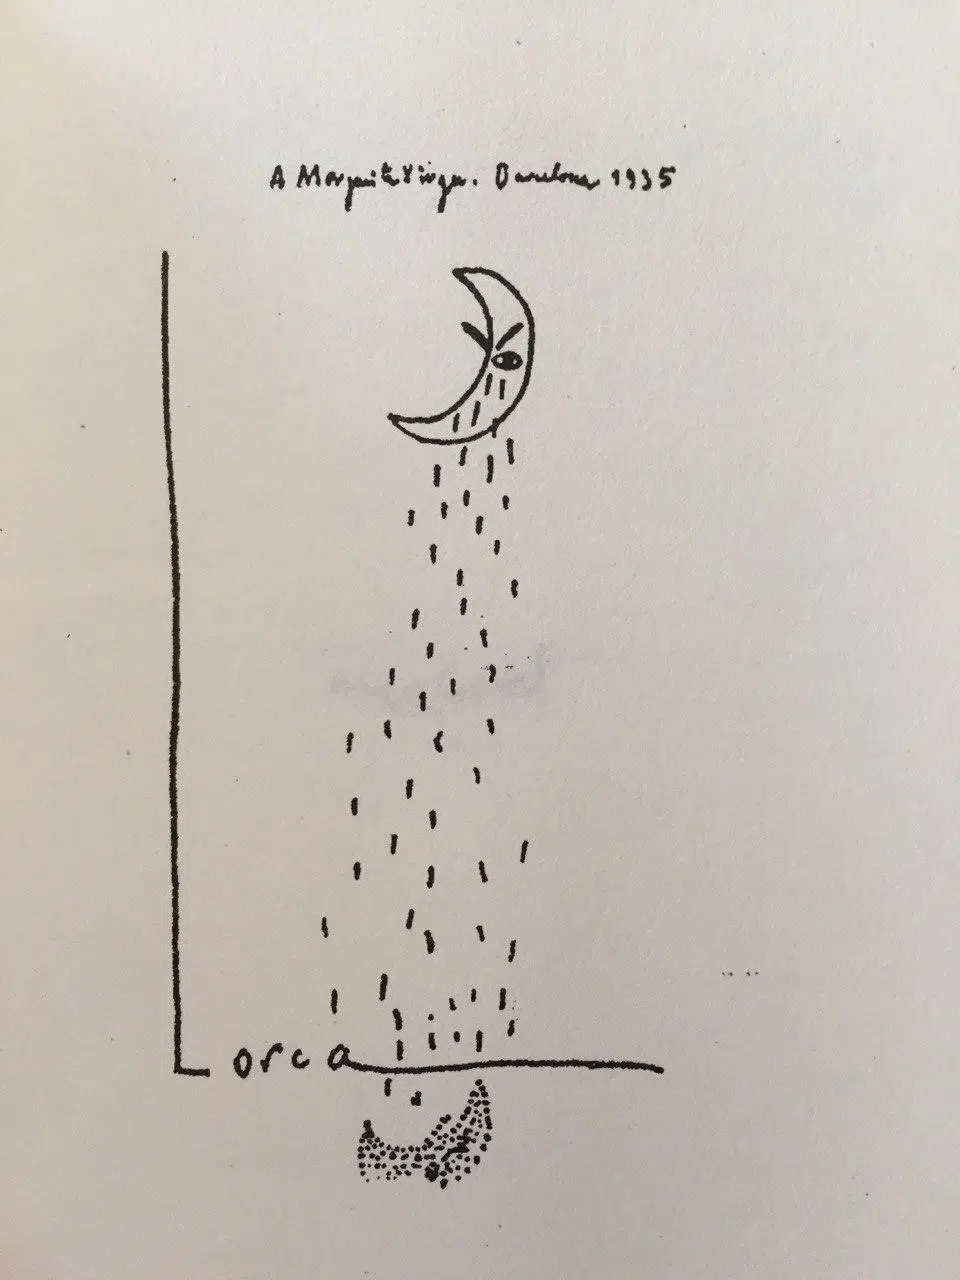 A Margarita Xirgu. Barcelona 1935
Lorca